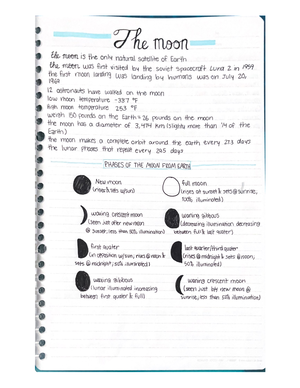 The moon
the moon is the only natural satellite of Earth
the moon was first visited by the soviet spacecraft Luna 2 in 1959
the first moon landing was landing by humans was on July 20,
1969
12 astronauts have walked on the moon
low moon temperature -387 °F
high moon temperature 253 °F
weigh 150 pounds on the Earth = 26 pounds on the moon
the moon has a diameter of 3,474 km (slightly more than ¼ of the
Earth)
the moon makes a complete orbit around the earth every 27.3 days
the lunar phases that repeat every 29.5 days
PHASES OF THE MOON FROM EARTH
New moon
(rises & sets w/sun)
full moon
(rises at sunset & sets @ sunrise,
100% illuminated)
waxing crescent moon
(seen just after new moon
@ sunset, less than 50% illumination)
waning gibbous
(decreasing illumination decreasing
between full & last quater)
first quater
(in opposition w/sun, rises @ noon &
sets @ midnight, 50% illuminated)
last quarter/third quater
(rises @ midnight & sets @ noon,
50% illuminated)
waxing gibbous
(lunar illuminated increasing
between first quater & full)
waning crescent moon
(seen just before new moon @
sunrise, less than 50% illumination)